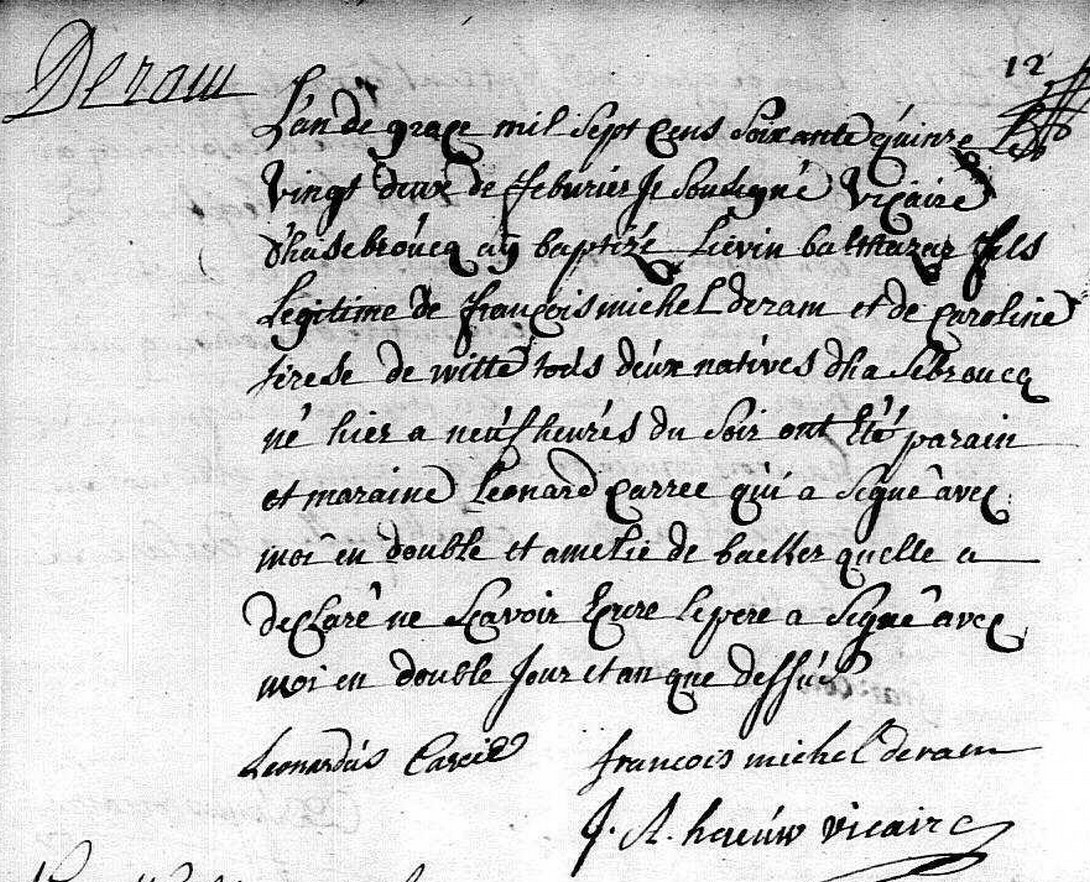 Deram
12
L'an de grace mil sept cens soixante quinze le
vingt deux de feburier Je soussigné vicaire
d'hasebroucq ay baptizé Lievin balthazar fils
Legitime de françois michel deram et de caroline
terese de witte tous deux natives dhasebroucq
né hier a neuf heures du soir ont Eté parain
et maraine Leonard carree qui a signé avec
moi en double et amelie de backer quelle a
declaré ne scavoir Ecrire le pere a signé avec
moi en double Jour et an que dessus
Leonardus
francois michel deram
J. vicaire